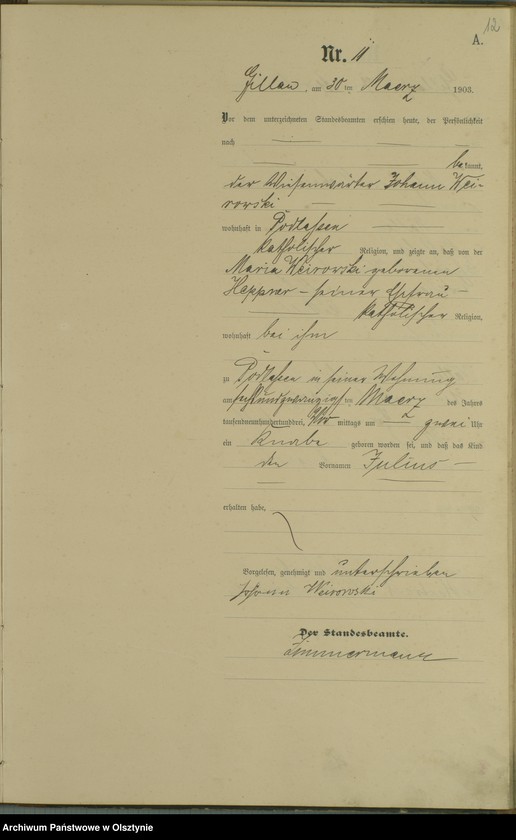 12
A.
Nr. 11
Gillau, am 30 ten Maerz 1903.
Vor dem unterzeichneten Standesbeamten erschien heute, der Persönlichkeit
nach
bekannt,
der Wiesenwärter Johann Wei-
rowski
wohnhaft in Podlassen
katholischer Religion, und zeigte an, daß von der
Maria Weirowski geborenen
Heppner - seiner Ehefrau -
katholischer Religion,
wohnhaft bei ihm
zu Podlassen in seiner Wohnung
am sechsundzwanzigsten Maerz des Jahres
tausendneunhundertunddrei, mittags um zwei Uhr
ein Knabe geboren worden sei, und daß das Kind
den Vornamen Julius -
erhalten habe,
Vorgelesen, genehmigt und unterschrieben
Johann Weirowski
Der Standesbeamte.
Zimmermann
Archiwum Państwowe w Olsztynie